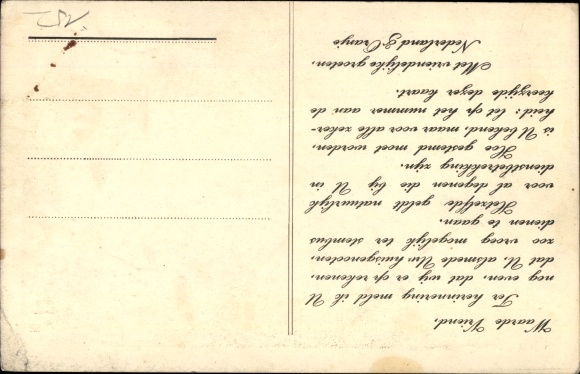 Waarde Vriend,
Ter herinnering meld ik U
nog even, dat wij er op rekenen,
dat U, alsmede Uw huisgenooten,
zoo vroeg mogelijk ter stembus
dienen te gaan.
Hetzelfde geldt natuurlijk
voor al degenen die bij U in
dienstbetrekking zijn.
Hoe gestemd moet worden,
is U bekend, maar voor alle zeker-
heid: let op het nummer aan de
keerzijde dezer kaart.
Met vriendelijke groeten,
Nederland & Oranje